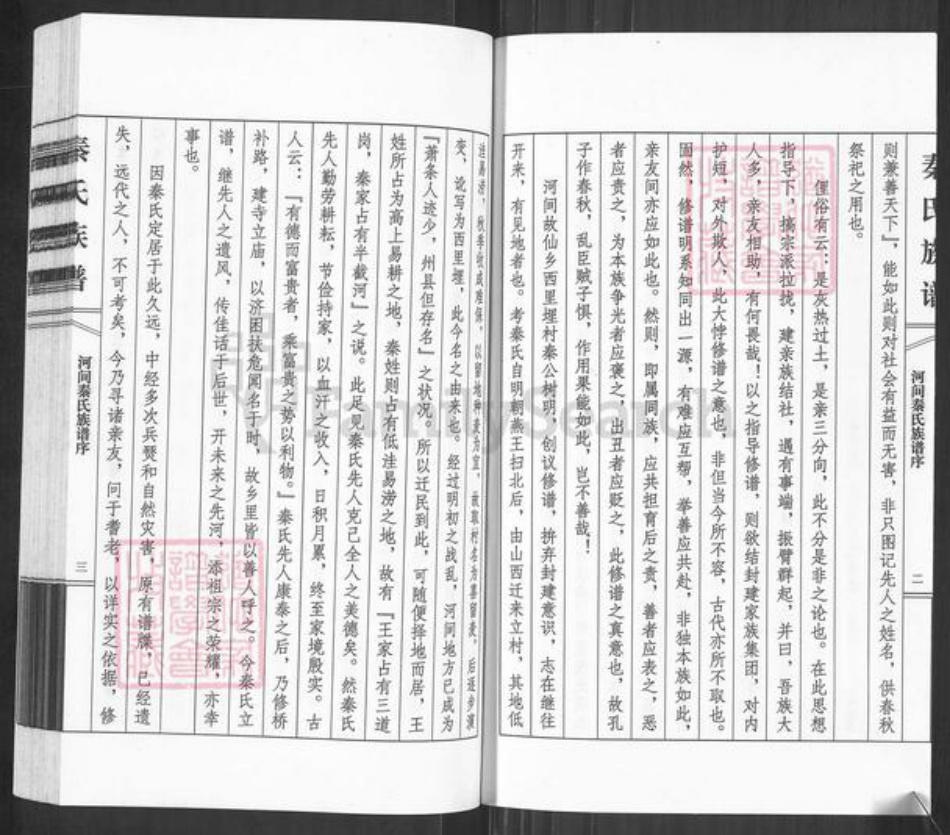 秦氏族谱
河间秦氏族谱序
二
则兼善天下』，能如此则对社会有益而无害，非只图记先人之姓名，供春秋
祭祀之用也。
俚俗有云：是灰热过土，是亲三分向，此不分是非之论也。在此思想
指导下，搞宗派拉拢，建亲族结社，遇有事端，振臂群起，并曰，吾族大
人多，亲友相助，有何畏哉！以之指导修谱，则欲结封建家族集团，对内
护短，对外欺人，此大悖修谱之意也，非但当今所不容，古代亦所不取也。
固然，修谱明系知同出一源，有难应互帮，举善应共赴，非独本族如此，
亲友间亦应如此也。然则，即属同族，应共担育后之责，善者应表之，恶
者应责之，为本族争光者应褒之，出丑者应贬之，此修谱之真意也，故孔
子作春秋，乱臣贼子惧，作用果能如此，岂不善哉！
河间故仙乡西里埋村秦公树明，创议修谱，拚弃封建意识，志在继往
开来，有见地者也。考秦氏自明朝燕王扫北后，由山西迁来立村，其地低
洼易涝，秋季收成难保，以留地种麦为宜，故取村名为喜留麦，后逐步演
变，讹写为西里埋，此今名之由来也。经过明初之战乱，河间地方已成为
『萧条人迹少，州县但存名』之状况。所以迁民到此，可随便择地而居，王
姓所占为高上易耕之地，秦姓则占有低洼易涝之地，故有『王家占有三道
岗，秦家占有半截河』之说。此足见秦氏先人克己全人之美德矣。然秦氏
先人勤劳耕耘，节俭持家，以血汗之收入，日积月累，终至家境殷实。古
人云：『有德而富贵者，乘富贵之势以利物。』秦氏先人康泰之后，乃修桥
补路，建寺立庙，以济困扶危闻名于时，故乡里皆以善人呼之。今秦氏立
谱，继先人之遗风，传佳话于后世，开未来之先河，添祖宗之荣耀，亦幸
事也。
因秦氏定居于此久远，中经多次兵燹和自然灾害，原有谱牒，已经遗
失，远代之人，不可考矣，今乃寻诸亲友，问于耆老，以详实之依据，修
秦氏族谱
河间秦氏族谱序
三
FamilySearch